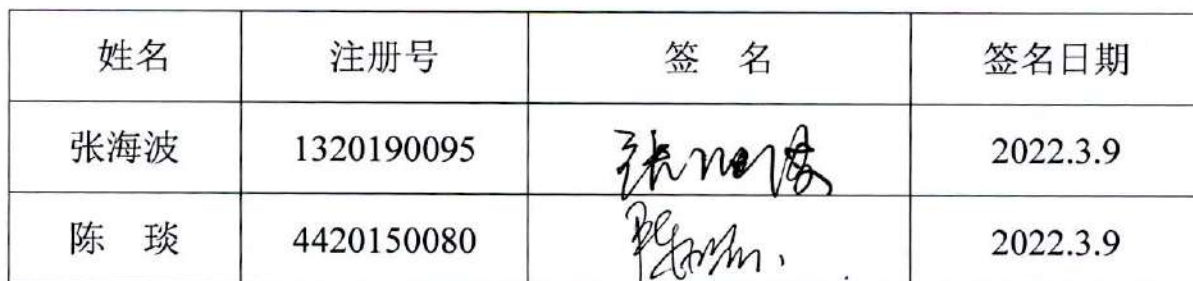 姓名 注册号 签 名 签名日期
张海波 1320190095 张海波 2022.3.9
陈 琰 4420150080 2022.3.9